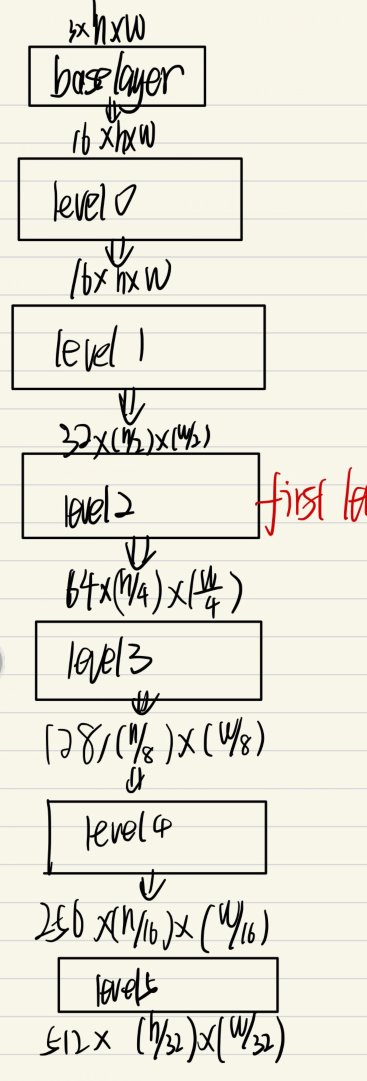 3×h×w
base layer
16×h×w
level 0
16×h×w
level 1
32×(h/2)×(w/2)
level 2
first
64×(h/4)×(w/4)
level 3
128,(h/8)×(w/8)
level 4
256×(h/16)×(w/16)
level 5
512×(h/32)×(w/32)